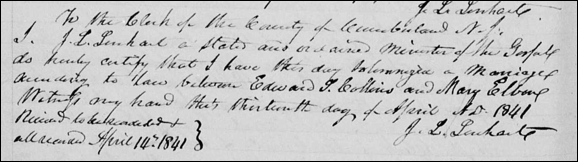 J. L. Lenhart
To the Clerk of the County of Cumberland N. J.
I. J. L. Lenhart a stated and ordained Minister of the Gospel
do hereby certify that I have this day solemnized a Marriage
according to Law between Edward S. Collins and Mary Elbing
Witness my hand this thirteenth day of April A.D. 1841
Received to be recorded &
all recorded April 14th 1841 }
J. L. Lenhart